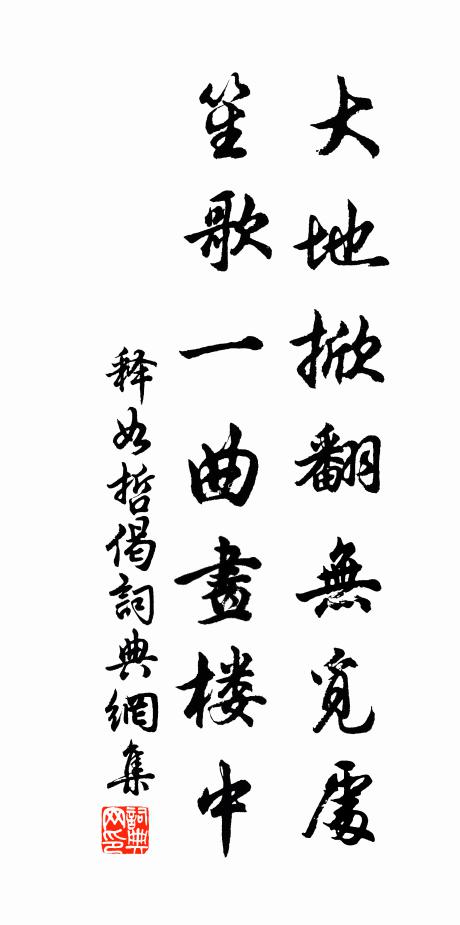 大地掀翻無覓處
笙歌一曲畫楼中
释如哲偈詞典網集
詞典網印